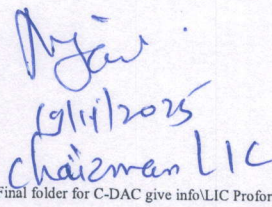 19/11/2025
Chairman LIC
Final folder for C-DAC give info\LIC Profor